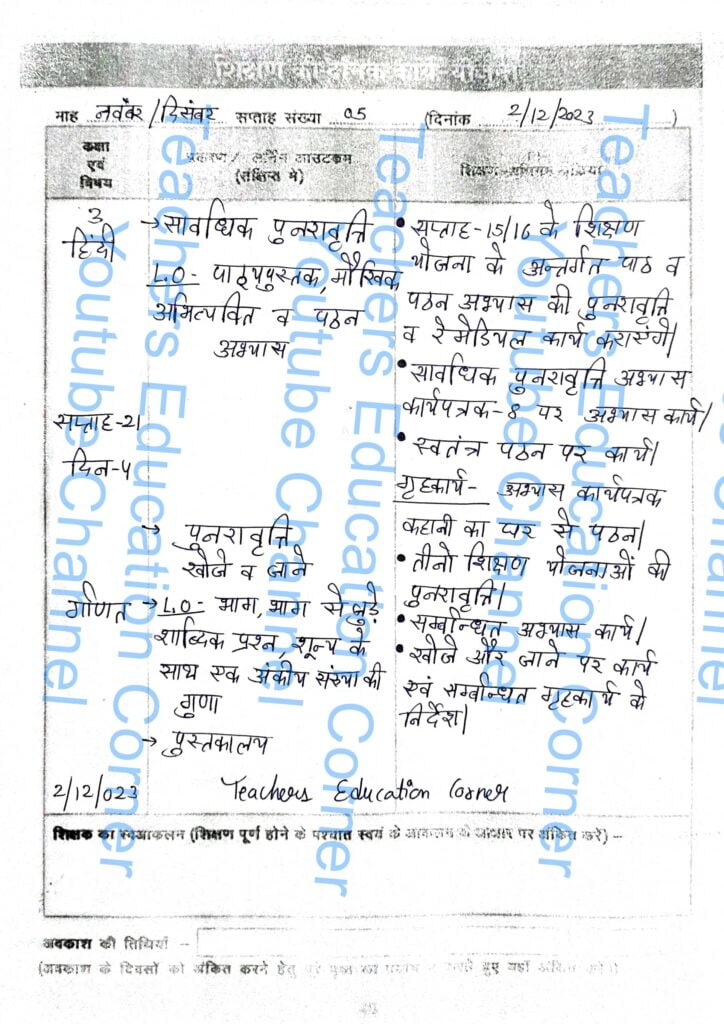 शिक्षण की दैनिक कार्य योजना
माह नवंबर/दिसंबर सप्ताह संख्या 05 (दिनांक 2/12/2023 )
कक्षा
एवं
विषय
प्रकरण / लर्निंग आउटकम
(संक्षिप्त में)
3
हिंदी
सप्ताह-21
दिन-५
गणित
→ सावधिक पुनरावृत्ति
L.O- पाठ्यपुस्तक, मौखिक
अभिव्यक्ति व पठन
अभ्यास
→ पुनरावृत्ति
खोजे व जाने
→ L.O- भाग, भाग से जुड़े
शाब्दिक प्रश्न, शून्य के
साथ एक अंकीय संख्या की
गुणा
→ पुस्तकालय
• सप्ताह-15/16 के शिक्षण
योजना के अन्तर्गत पाठ व
पठन अभ्यास की पुनरावृत्ति
व रेमेडियल कार्य कराएंगे|
• सावधिक पुनरावृत्ति अभ्यास
कार्यपत्रक-8 पर अभ्यास कार्य|
• स्वतंत्र पठन पर कार्य|
गृहकार्य- अभ्यास कार्यपत्रक
कहानी का घर से पठन|
• तीनो शिक्षण योजनाओं की
पुनरावृत्ति|
• सम्बन्धित अभ्यास कार्य|
• खोजे और जाने पर कार्य
एवं सम्बन्धित गृहकार्य के
निर्देश|
2/12/023 Teachers Education Corner
शिक्षक का स्वआकलन (शिक्षण पूर्ण होने के पश्चात स्वयं के आकलन के आधार पर अंकित करें) –
अवकाश की तिथियां –
(अवकाश के दिवसों को अंकित करने हेतु हुए यहाँ अंकित करें।)
Teachers Education Corner
Youtube Channel
Teachers Education Corner
Youtube Channel
Teachers Education Corner
Youtube Channel